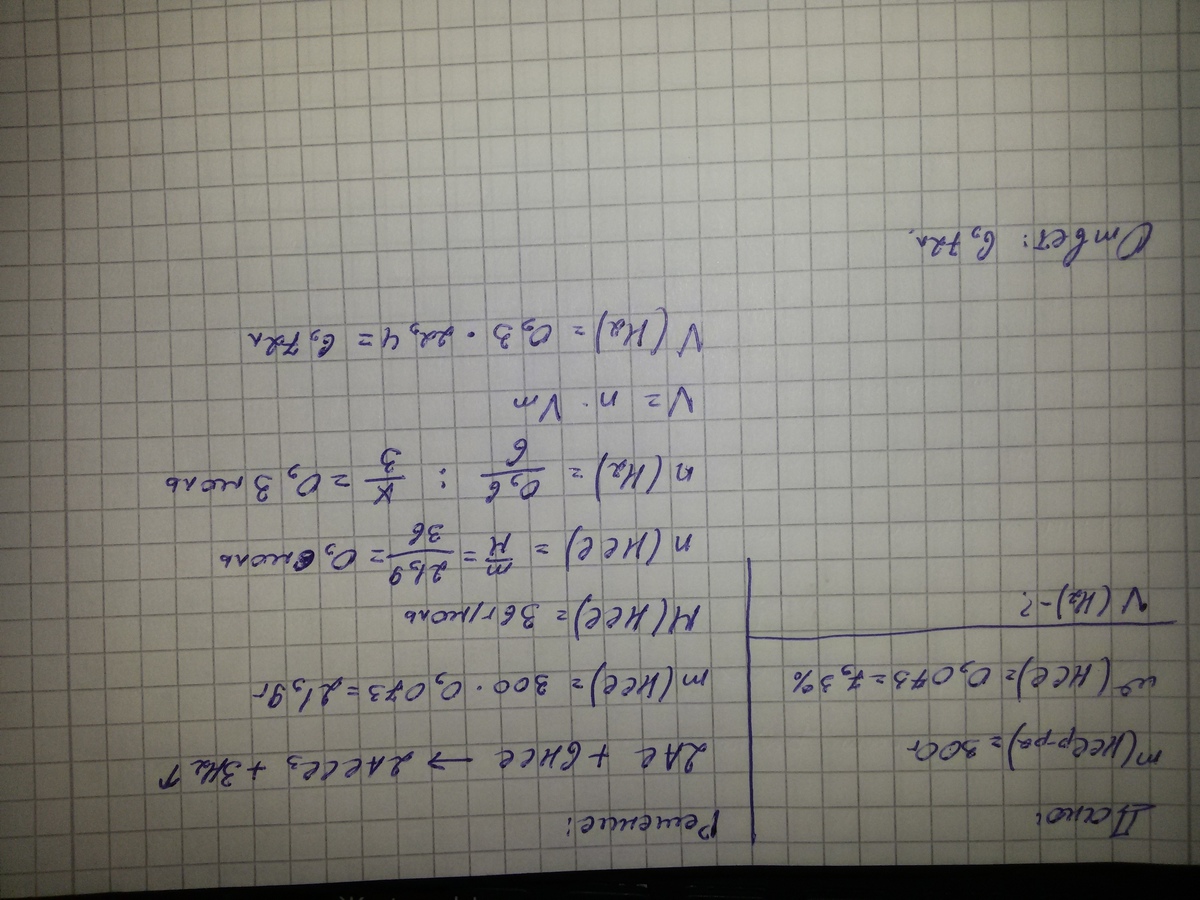 Дано:
m(HCl р-ра) = 300г
ω(HCl) = 0,073 = 7,3%
V(H2) - ?
Решение:
2Al + 6HCl → 2AlCl3 + 3H2↑
m(HCl) = 300 · 0,073 = 21,9г
M(HCl) = 36г/моль
n(HCl) = m/M = 21,9/36 = 0,6моль
n(H2) = 0,6/6 : x/3 = 0,3моль
V = n · Vm
V(H2) = 0,3 · 22,4 = 6,72л
Ответ: 6,72л.